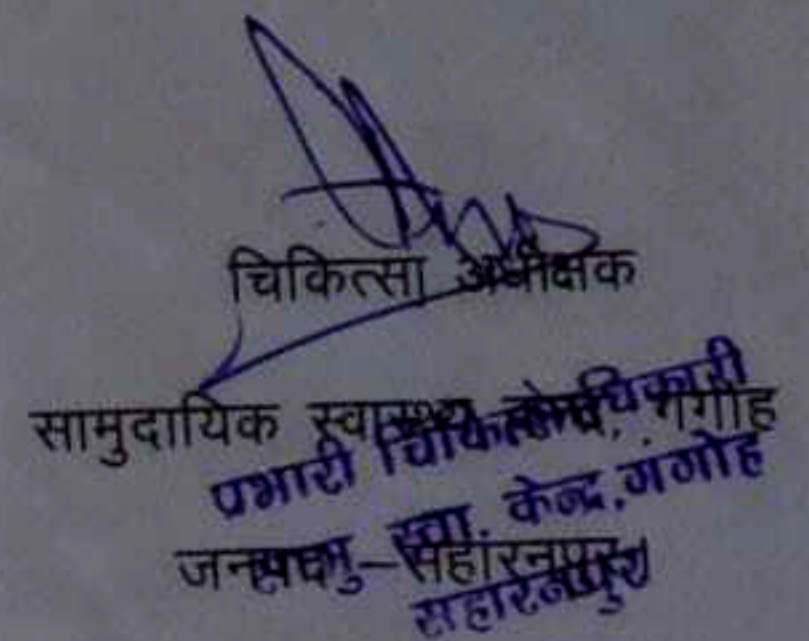 चिकित्सा अधीक्षक
सामुदायिक स्वास्थ्य केन्द्र, गंगोह
जनपद–सहारनपुर।
प्रभारी चिकित्साधिकारी
सामु. स्वा. केन्द्र, गंगोह
सहारनपुर